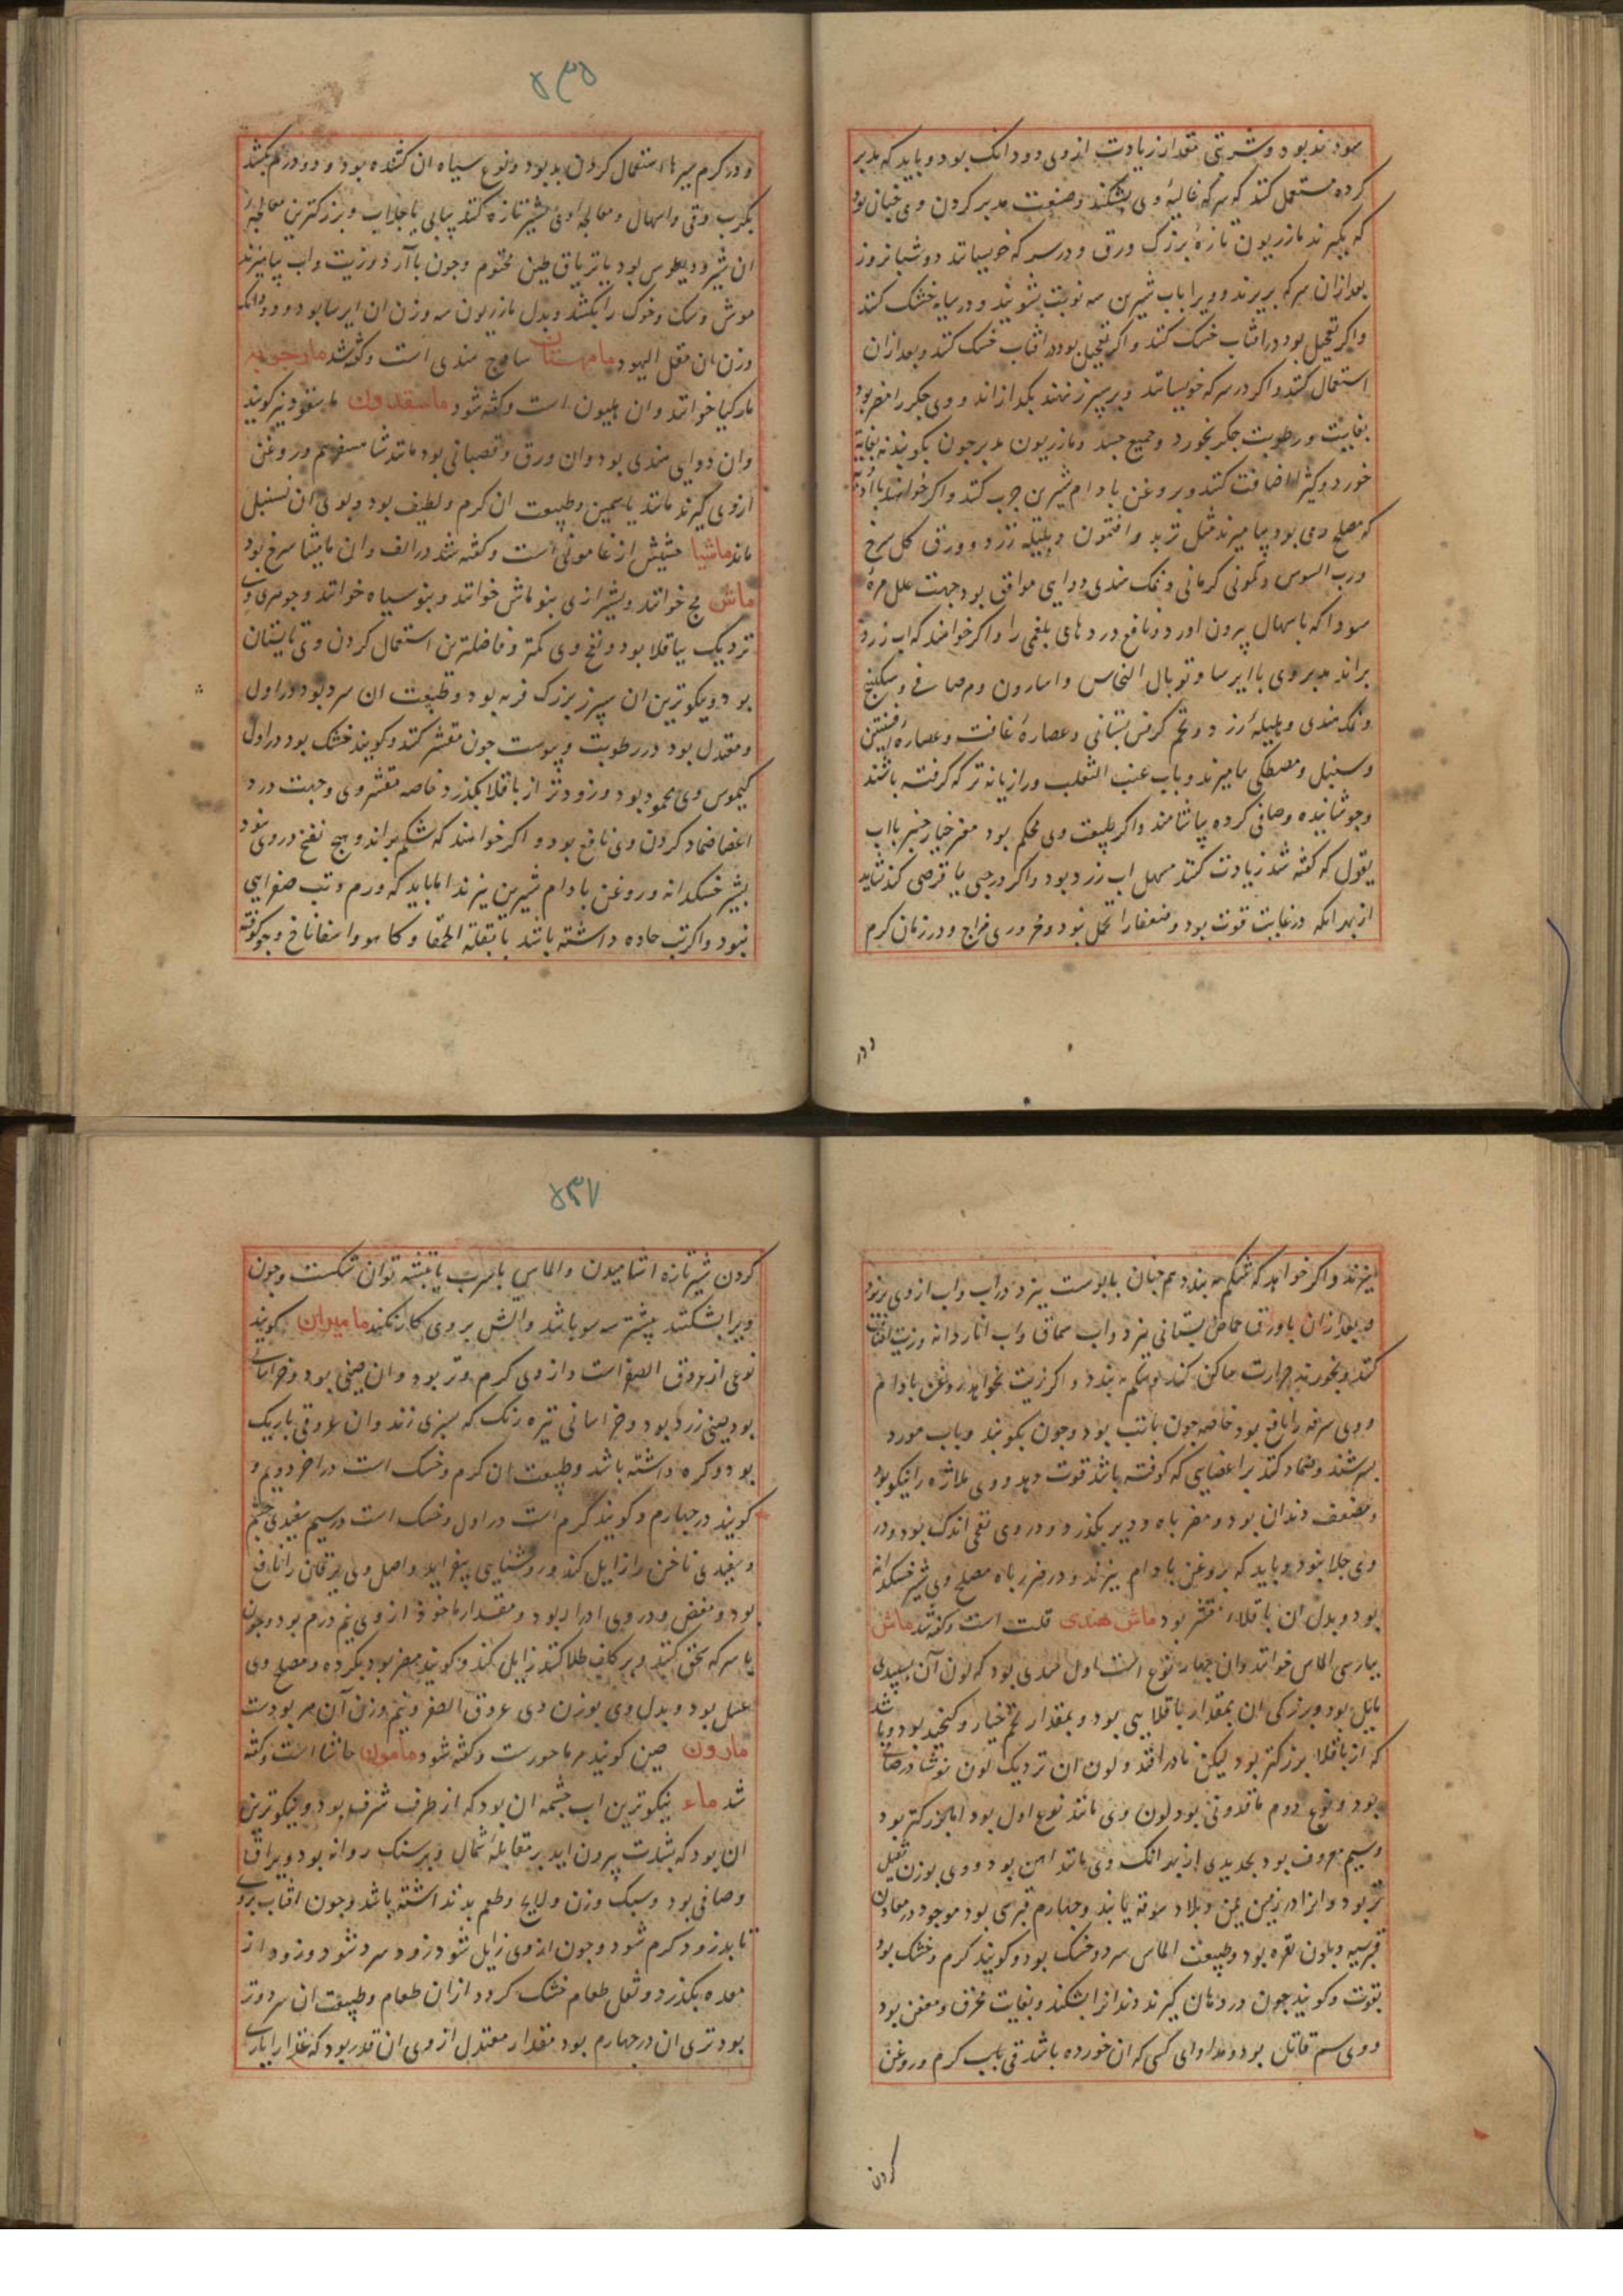 سودمند بود و شربتی مقدار زیادت از وی دو دانک بود و باید که مدبر
کرده مستعمل کنند که سرکه غایلهٔ وی بشکند و صنعت مدبر کردن وی چنان بود
که بگیرند مازریون تازهٔ بزرک ورق و در سرکه خویسانند دو شبانروز
بعد ازان سرکه بریزند و ویرا باب شیرین سه نوبت بشویند و در سایه خشک کنند
واکر تعجیل بود در افتاب خشک کنند و اکر تعجیل بود در افتاب خشک کنند و بعد ازان
استعمال کنند و اکر در سرکه خویسانند و بر سپرز نهند بکدازاند و وی جکر را مضر بود
بغایت و رطوبت جکر بخورد و جمیع جسد و مازریون مدبر چون بکوبند نه بغایة
خورد و کثیرا اضافت کنند و بروغن بادام شیرین چرب کنند و اکر خواهند با ادویه
که مصلح وی بود بیامیزند مثل تربد و افتمون و هلیله زرد و ورق کل سرخ
ورب السوس و کمونی کرمانی و نمک هندی دوایی موافق بود جهت علل مرهٔ
سودا که باسهال بیرون اورد و نافع دردهای بلغمی را و اکر خواهند که اب زرد
براند مدبر وی با ایرسا و توبال النحاس و اسارون و مر صافی و سکبینج
و نمک هندی و هلیله زرد و تخم کرفس بستانی و عصارهٔ غافت و عصارهٔ افسنتین
و سنبل و مصطکی بیامیزند و باب عنب الثعلب و رازیانه تر که کرفته باشند
و جوشانیده و صافی کرده بیاشامند و اکر طبیعت وی محکم بود مغز خیارچنبر بااب
بقول که کفته شد زیادت کنند مسهل اب زرد بود و اکر در حبی یا قرصی کنند شاید
از بهر انکه در غایت قوت بود و ضعفا را تحمل نبود و محروری مزاج و در زمان کرم
ودر
۵۳۵
و در کرم سیرها استعمال کردن بد بود و نوع سیاه ان کشنده بود و دو درم بکشد
بکرب و قی و اسهال و معالجه اوی بشیر تازه کنند پیاپی یا جلاب و بزرکترین معالجهٔ
ان شرودیطوس بود یا تریاق طین مختوم و چون با آرد و زیت و اب بیامیزند
موش و سک و خوک را بکشد و بدل مازریون سه وزن ان ایرسا بود و دو دانک
وزن ان مقل الیهود مامهستان ساذج هندی است و کفته شد مارجوبه
مارکیا خوانند و ان هلیون است و کفته شود ماسقدون ماسفودیز کویند
وان دوایی هندی بود و ان ورق و قصبانی بود مانند شاهسفرم و روغن
ازوی کیرند مانند یاسمین و طبیعت ان کرم و لطیف بود و بوی ان بسنبل
ماند ماشیا حشیش ازغامونی است و کفته شد در الف و ان مامیثا سرخ بود
ماش مج خوانند و بشیرازی بنو ماش خوانند و بنو سیاه خوانند و جوهری وی
نزدیک بباقلا بود و نفخ وی کمتر و فاضلترین استعمال کردن وی تابستان
بود و نیکوترین ان سبز بزرک فربه بود و طبیعت ان سرد بود در اول
و معتدل بود در رطوبت و یبوست چون مقشر کنند و کویند خشک بود در اول
کیموس وی محمود بود و زودتر از باقلا بکذرد خاصه مقشر وی و جهت درد
اعضا ضماد کردن وی نافع بود و اکر خواهند که شکم براند و هیچ نفخ در وی نبود
بشیر خسکدانه و روغن بادام شیرین بپزند اما باید که ورم و تب صفرایی
نبود و اکر تب حاده داشته باشد با بقلة الحمقا و کاهو و اسفاناخ و جو کوفته
بپزند و اکر خواهد که شکم ببندد همچنان با پوست بپزد در اب و اب ازوی بریزد
و بعد ازان با ورق حماض بستانی بپزد و اب سماق و اب اناردانه و زیت انفاق
کنند و بخورند حرارت ساکن کند و شکم ببندد و اکر زیت نخواهد روغن بادام
ووی سرفه را نافع بود خاصه چون با تب بود و چون بکوبند و باب مورد
بسرشند و ضماد کنند بر اعضایی که کوفته باشد قوت دهد ووی ملازه را نیکو بود
و مضعف دندان بود و مضر باه و دیر بکذرد و در وی نفخی اندک بود و در
وی جلا نبود و باید که بروغن بادام بپزند و در مضر باه مصلح وی شیر خسکدانه
بود و بدل ان باقلاء مقشر بود ماش هندی قلت است و کفته شد ماش
بپارسی الماس خوانند وان چهار نوع است اول هندی بود که لون آن بسپیدی
مایل بود و بزرکی ان بمقدار باقلایی بود و بمقدار تخم خیار و کنجد بود و باشد
که از باقلا بزرکتر بود لیکن نادر افتد و لون ان نزدیک لون نوشادر صافی
بود و نوع دوم ماقدونی بود لون وی مانند نوع اول بود اما بزرکتر بود
و سیم معروف بود بحدیدی از بهر انک وی مانند اهن بود و وی بوزن ثقیل
تر بود و انرا در زمین یمن و بلاد سوقه یابند و چهارم قبرسی بود موجود در معادن
قبرسیه و بلون نقره بود و طبیعت الماس سرد و خشک بود و کویند کرم و خشک بود
بقوت و کویند چون در دهان کیرند دندانرا بشکند و بغایت محرق و معفن بود
ووی سم قاتل بود و مداوای کسی که ان خورده باشد قی باب کرم و روغن
کردن
۵۳۷
کردن شیر تازه اشامیدن و الماس باسرب یا بتیشه توان شکست و چون
ویرا بشکنند بیشتر سه سو باشد و اتش بر وی کار نکند مامیران کویند
نوعی از عروق الصفراست و از وی کرم ورتر بود و ان چینی بود و خراسانی
بود چینی زرد بود و خراسانی تیره رنک که بسبزی زند و ان عروقی باریک
بود و کره داشته باشد و طبیعت ان کرم و خشک است در اخر دویم و
کویند در چهارم و کویند کرم است در اول و خشک است در سیم سفیدی چشم
و سفیدی ناخن را زایل کند و روشنایی بیفزاید و اصل وی یرقان را نافع
بود و مغص و در وی ادرار بود و مقدار ماخوذ ازوی نیم درم بود و چون
با سرکه سحق کنند و بر کلف طلا کنند زایل کند و کویند مضر بود بکرده و مصلح وی
عسل بود و بدل وی بوزن وی عروق الصفر و نیم وزن آن مر بودست
مارون حین کویند مرماحورست و کفته شود مامون حاشا است و کفته
شد ماء نیکوترین اب چشمه ان بود که از طرف شرق بود و نیکوترین
ان بود که بشدت بیرون اید بر مقابله شمال و بر سنک روانه بود و براق
و صافی بود و سبک وزن و رایح و طعم بد نداشته باشد و چون افتاب بروی
تابد زود کرم شود و چون ازوی زایل شود زود سرد شود و زود از
معده بکذرد و ثفل طعام خشک کردد ازان طعام و طبیعت ان سرد و تر
بود تری ان در چهارم بود مقدار معتدل ازوی ان قدر بود که غذا را یاری